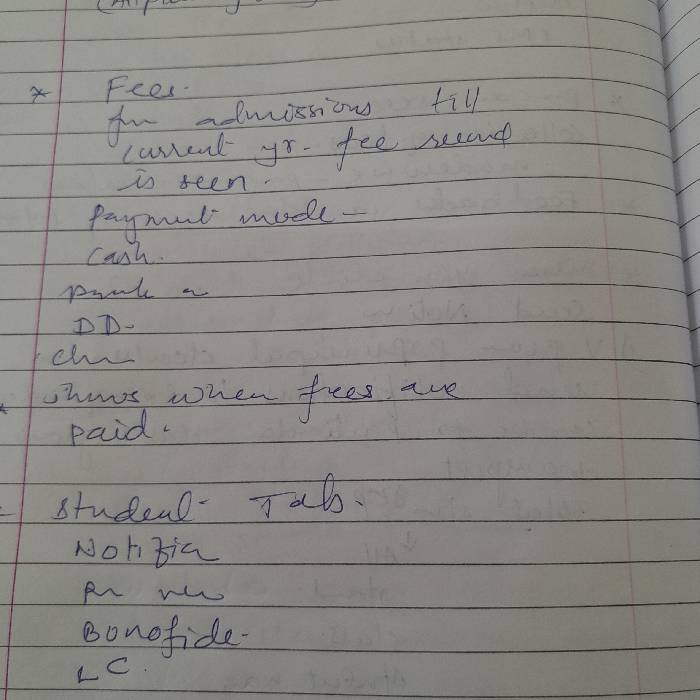 * Fees.
for admissions till
current yr. fee record
is seen.
Payment mode -
Cash.
DD.
shows when fees are
paid.
- Student Tab.
Notifica
Bonofide -
LC.